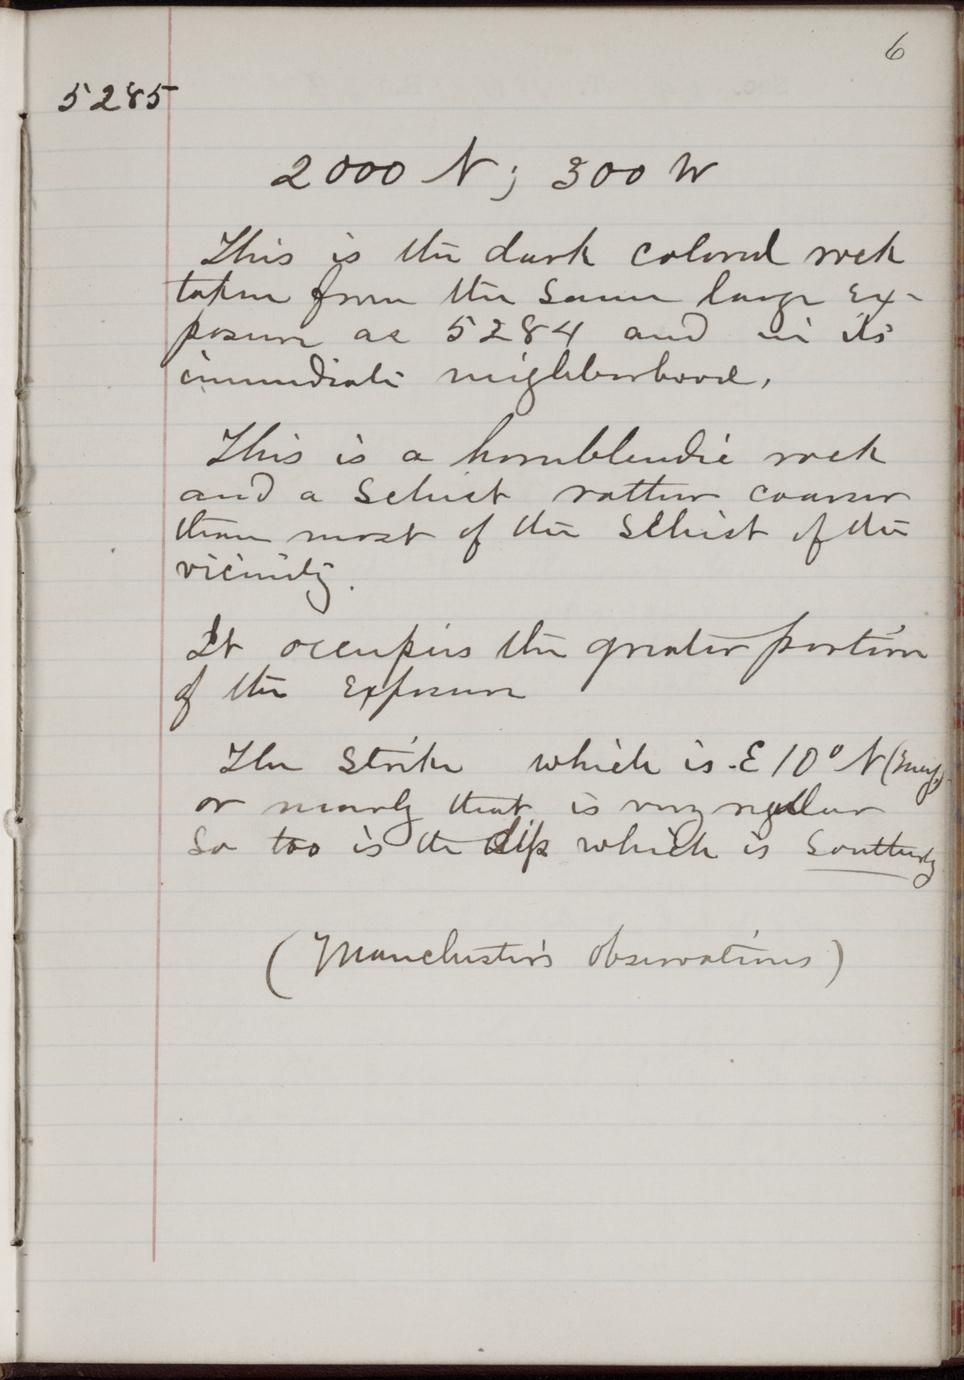 6
5285
2000 N; 300 W
This is the dark colored rock
taken from the same large ex-
posure as 5284 and in its
immediate neighborhood.
This is a hornblendic rock
and a schist rather coarser
than most of the schist of the
vicinity.
It occupies the greater portion
of the exposure
The strike which is E 10° N
or nearly that is very regular
So too is the dip which is southerly
(Manchester's observations)